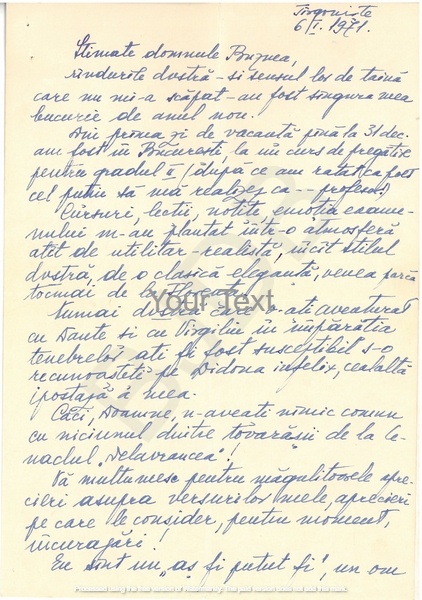 Tîrgoviște
6 I. 1971.
Stimate domnule Buznea,
rîndurile dvstră – și sensul lor de taină
care nu mi-a scăpat – au fost singura mea
bucurie de anul nou.
Din prima zi de vacantă pînă la 31 dec.
am fost în București, la un curs de pregătire
pentru gradul II (după ce am ratat ca poet
cel puțin să mă realizez ca -- profesor!)
Cursuri, lecții, notițe, emoția exame-
nului m-au plantat într-o atmosferă
atît de utilitar-realistă, încît stilul
dvstră, de o clasică eleganță, venea parcă
tocmai de la
Your Text
Numai dvstră care v-ați aventurat
cu Dante și cu Virgiliu în împărăția
tenebrelor ați fi fost susceptibil s-o
recunoașteți pe Didona infelix, cealaltă
ipostază a mea.
Căci, Doamne, n-aveați nimic comun
cu niciunul dintre tovarășii de la Ce-
naclul „Delavrancea"!
Vă mulțumesc pentru măgulitoarele apre-
cieri asupra versurilor mele, aprecieri
pe care le consider, pentru moment,
încurajări!
Eu sînt un „aș fi putut fi", un om